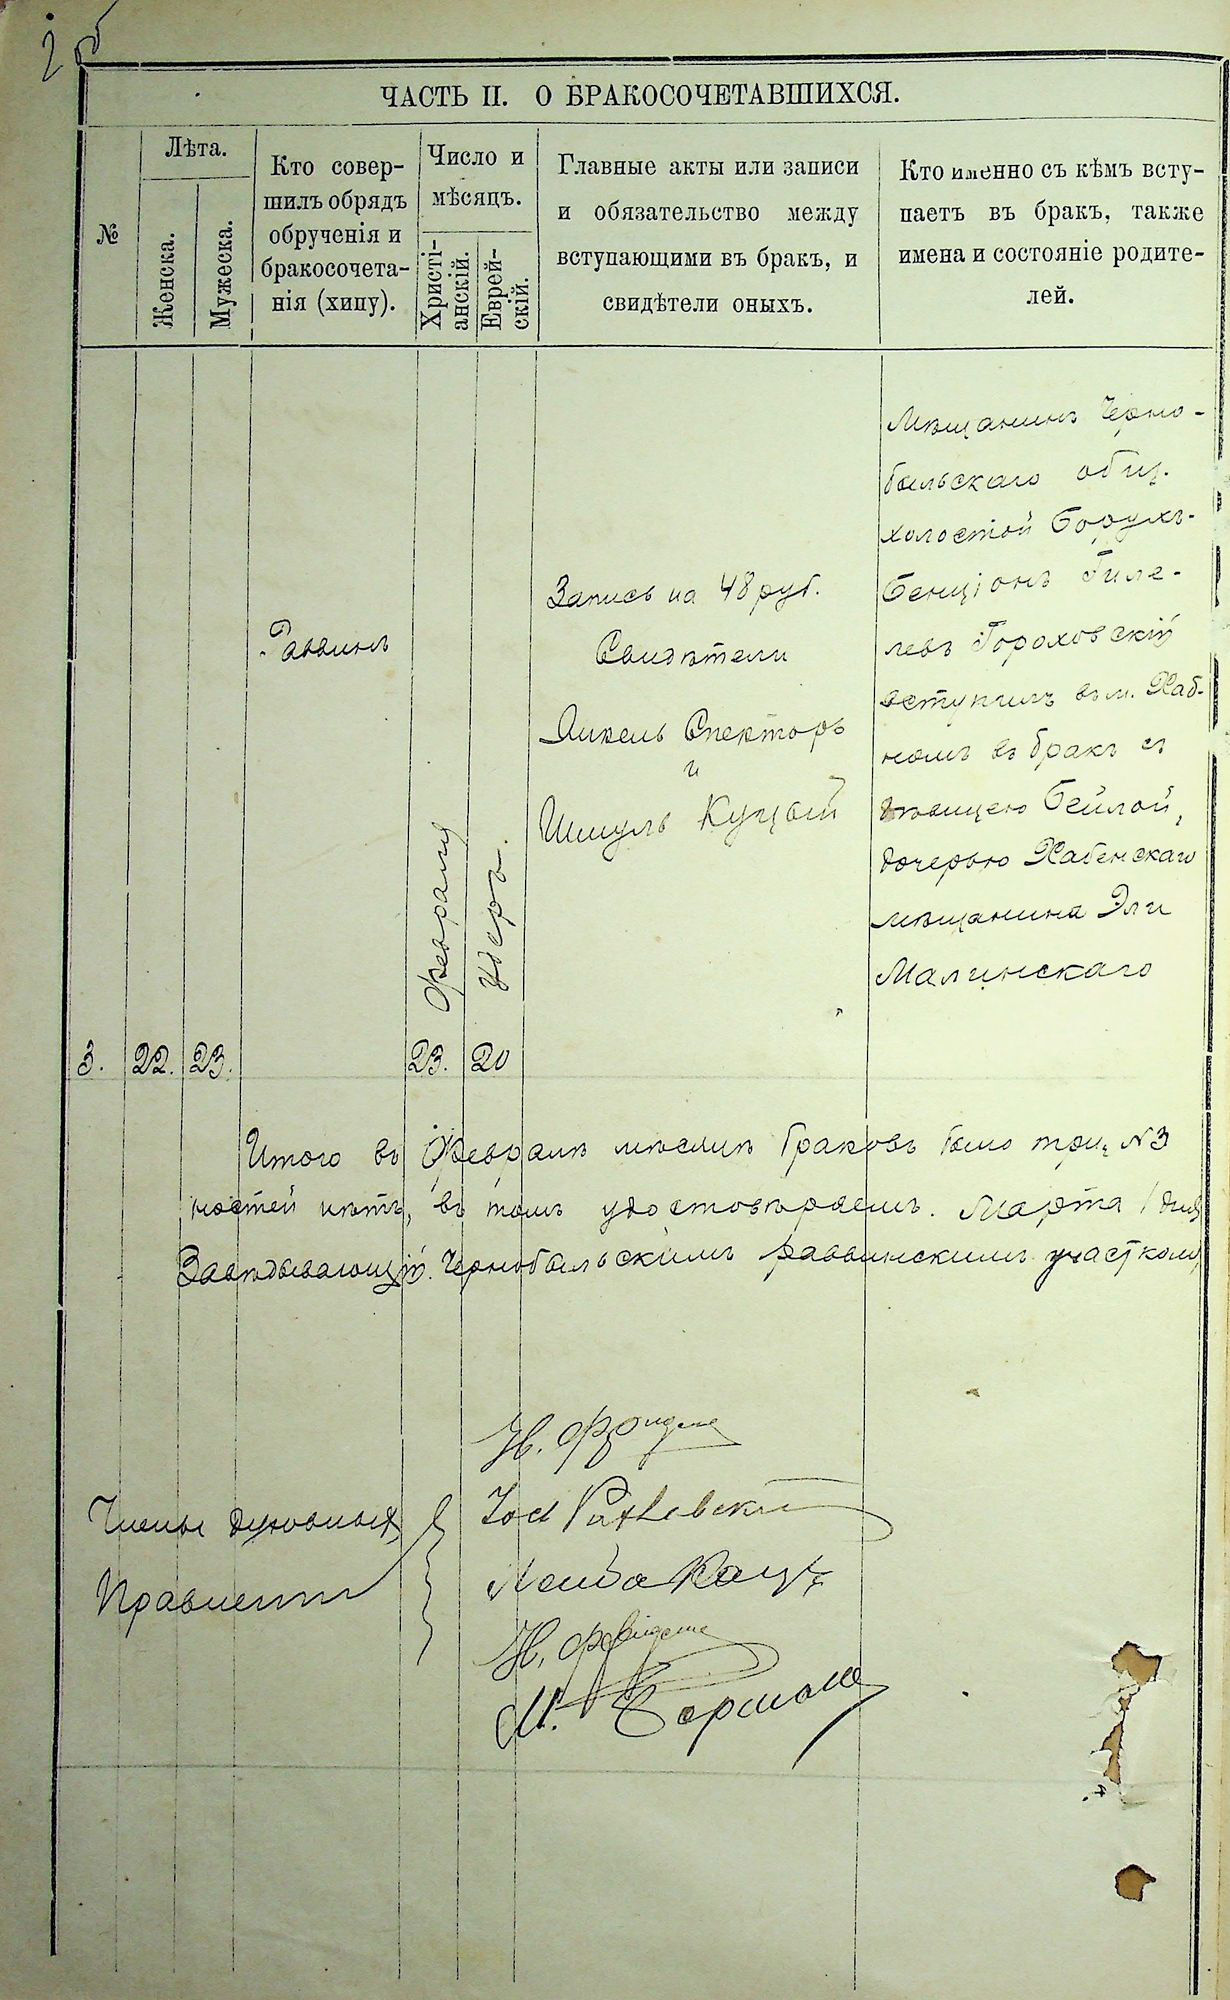 ЧАСТЬ II. О БРАКОСОЧЕТАВШИХСЯ.
№
Лѣта.
Женска.
Мужеска.
Кто совер-
шилъ обрядъ
обрученія и
бракосочета-
нія (хипу).
Число и
мѣсяцъ.
Христі-
анскій.
Еврей-
скій.
Главные акты или записи
и обязательство между
вступающими въ бракъ, и
свидѣтели оныхъ.
Кто именно съ кѣмъ всту-
паетъ въ бракъ, также
имена и состояніе родите-
лей.
3.
22.
23.
Раввинъ
Февраля
23.
Адеръ.
20
Запись на 48 руб.
Свидѣтели
Янкель Спекторъ
и
Шмуль Куцый
Мѣщанинъ Черно-
быльскаго общ.
холостой Борухъ-
Бенціонъ Гиле-
левъ Гороховскій
вступилъ въ м. Хаб-
номъ въ бракъ съ
дѣвицею Бейлой,
дочерью Хабенскаго
мѣщанина Эли
Малинскаго
Итого въ Февралѣ мѣсяцѣ браковъ было три, N3
ностей нѣтъ, въ томъ удостовѣряемъ. Марта 1 дня
Завѣдывающій Чернобыльскимъ раввинскимъ участкомъ
Члены духовнаго
Правленія
Лейба Кацъ
М. Берманъ